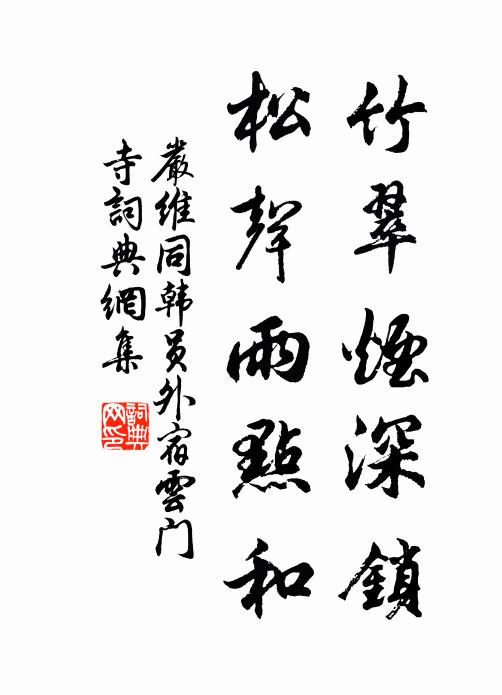 竹翠煙深鎖
松聲雨點和
嚴維同韩員外宿雲门
寺詞典網集
詞典
网印